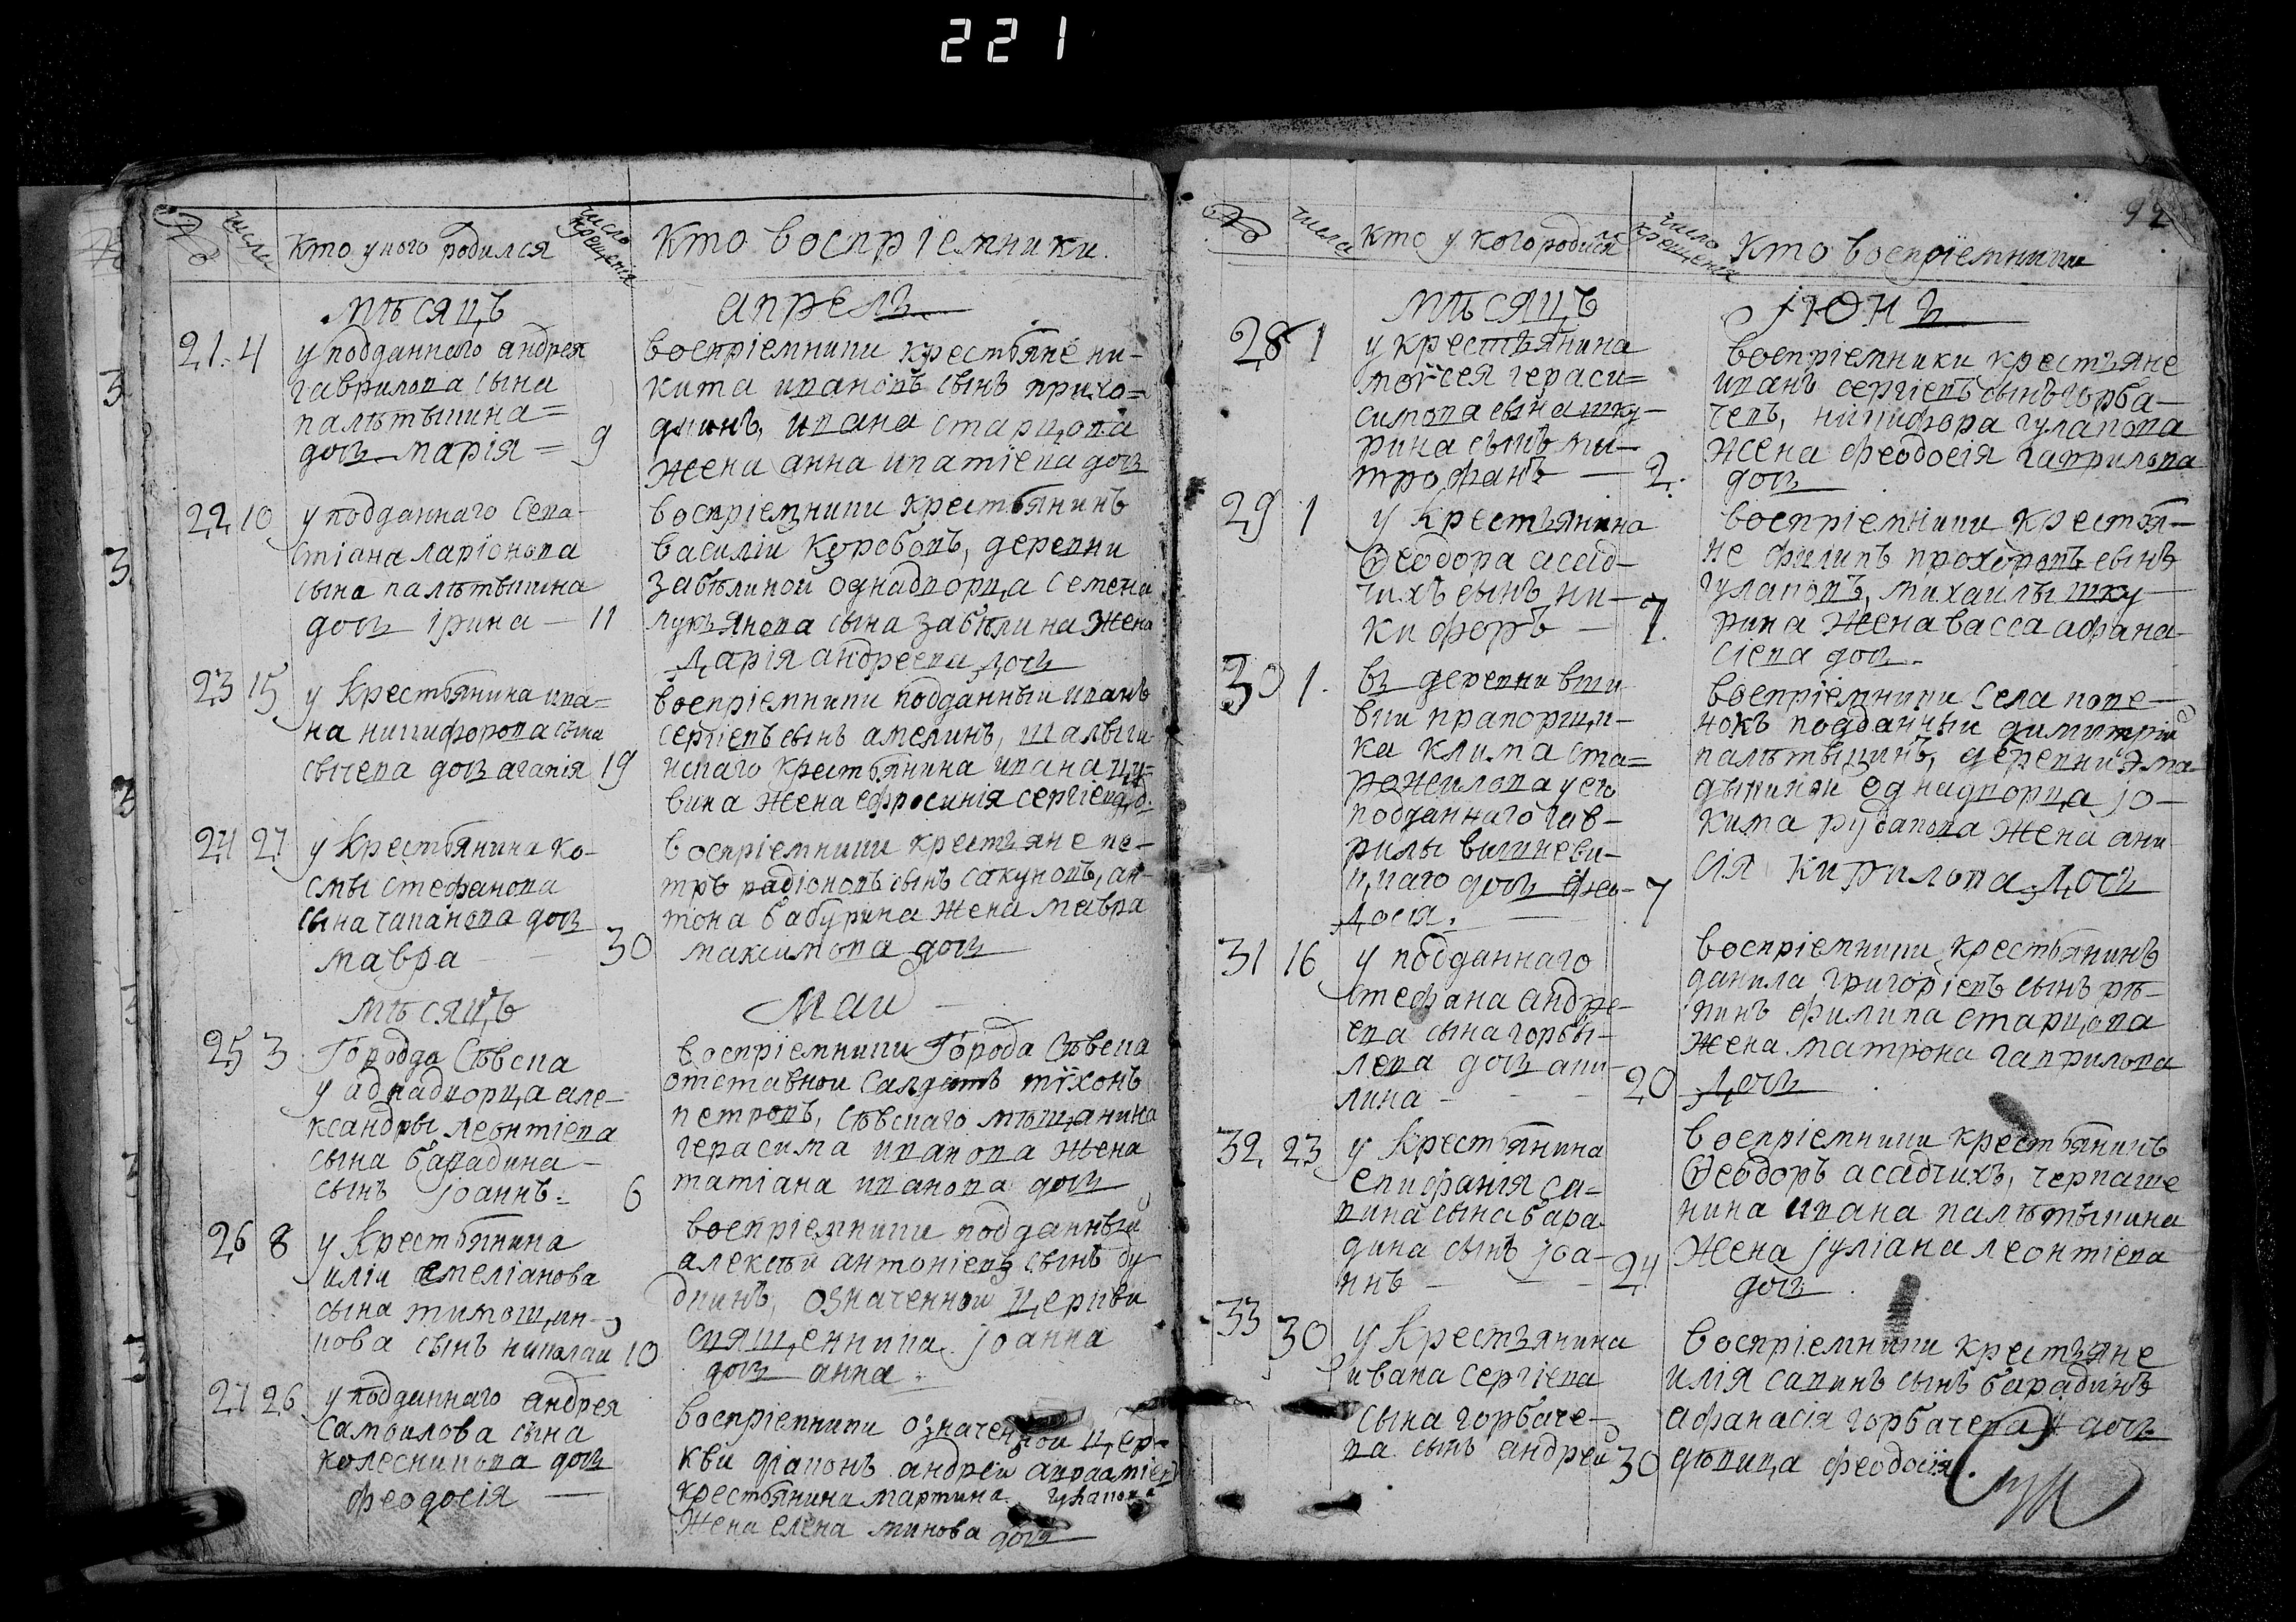 221
92
№ числа Кто у кого родился число крещенія Кто воспріемники.
мѣсяцъ апрель
21. 4 у подданнаго андрея
гаврилова сына
палѣтыкина =
дочь марія = 9
воспріемники крестьяне ни-
кита ивановъ сынъ прихо=
дкинъ, ивана старцова
жена анна ипатіева дочь
22 10 у подданнаго сева-
стіана ларіонова
сына палѣтыкина
дочь ірина — 11
воспріемники крестьянинъ
василіи коробовъ, деревни
забѣлиной однадворца семена
лукьянова сына забѣлина жена
дарія андреева дочь
23 15 у крестьянина ива=
на никифорова сына
свѣчева дочь агапія 19
воспріемники подданныи иванъ
сергіевъ сынъ амелинъ,
крестьянина ивана
вина жена ефросинія сергіева д.
24 27 у крестьянина ко-
смы стефанова
сына чапанова дочь
мавра — — 30
воспріемники крестьяне пе-
тръ радіоновъ сынъ сакуновъ, ан-
тона бабурина жена мавра
максимова дочь
мѣсяцъ маи
25 3 Города Сѣвска
у аднадворца але-
ксандры леонтіева
сына барадина —
сынъ іоаннъ. 6
воспріемники Города Сѣвска
отставнои салдатъ тихонъ
петровъ, сѣвскаго мѣщанина
герасима иванова жена
татіана иванова дочь
26 8 у крестьянина
иліи емеліанова
сына тимошин-
кова сынъ николаи 10
воспріемники подданныи
алексѣи антоніевъ сынъ бу
дкинъ, означеннои церкви
священника іоанна
дочь анна.
27 26 у подданнаго андрея
самоилова сына
колесникова дочь
феодосія —
воспріемники означеннои цер-
кви діаконъ андреи аврааміевъ
крестьянина мартина
жена елена минова дочь
№ числа кто у кого родился число крещенія Кто воспріемники
мѣсяцъ іюнь
28 1 у крестьянина
моѵсея гераси=
симова сына шку-
рина сынъ ми-
трофанъ — 2.
воспріемники крестьяне
иванъ сергіевъ сынъ горба-
чевъ, никифора гулапова
жена феодосія гаврилова
дочь
29 1 у крестьянина
Ѳеодора асад-
чихъ сынъ ни-
кифоръ — 7.
воспріемники крестья-
не филипъ прохоровъ сынъ
гулаповъ, михаилы шку-
рина жена васса афана-
сіева дочь.
30 1. въ деревни
прапорщи-
ка клима ста=
рожилова у его
подданнаго гав-
рилы вишневи-
цкаго дочь фео-
досія. 7
воспріемники села попе-
нокъ подданныи димитріи
палѣтыкинъ, деревни
однадворца іо-
кима рудапова жена ани
сія кирилова дочь
31 16 у подданнаго
стефана андре-
ева сына горбы-
лева дочь аки-
лина — — — 20
воспріемники крестьянинъ
данила григоріевъ сынъ рѣ-
пинъ филипа старцова
жена матрона гаврилова
дочь
32 23 у крестьянина
епифанія са-
вина сына бара-
дина сынъ іоа-
ннъ — — 24
воспріемники крестьянинъ
Ѳеодоръ асадчихъ,
ивана палѣтыкина
жена іуліана леонтіева
дочь.
33 30 у крестьянина
ивана сергіева
сына горбаче-
ва сынъ андреи 30
воспріемники крестьяне
илія савинъ сынъ барадинъ
афанасія горбачева дочь
дѣвица феодосія.